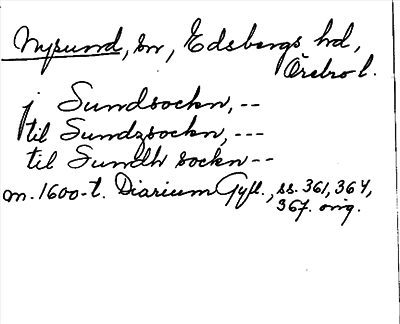 Nysund, sn, Edsbergs hd,
Örebro l.
j Sundsockn, --
til Sundzsockn, ---
til Sundh sockn --
m. 1600-t. Diarium Gyll., ss. 361, 364,
367. orig.